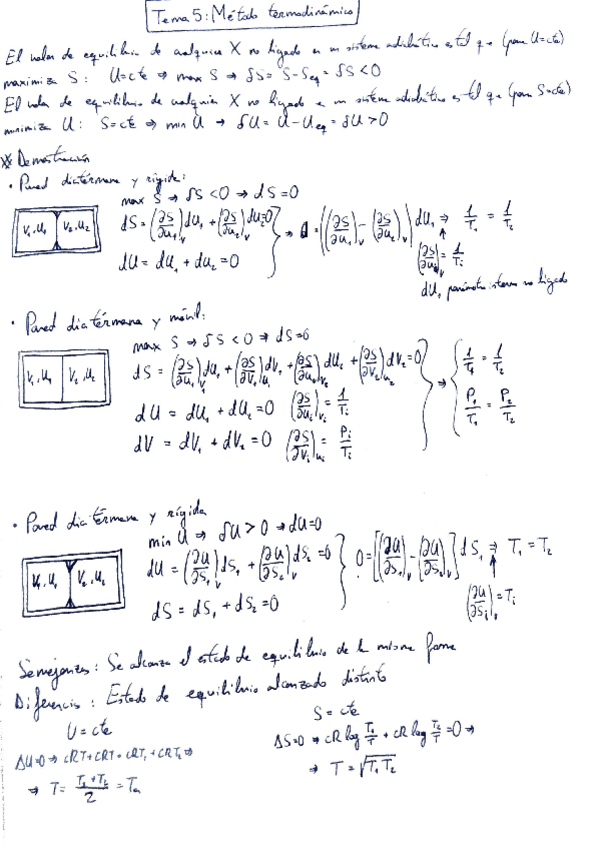 Tema 5: Método termodinámico
El valor de equilibrio de cualquier X no ligado en un sistema adiabático es tal que (para U=cte)
maximiza S: U=cte ⇒ max S → δS = S-S_eq = δS<0
El valor de equilibrio de cualquier X no ligado a un sistema adiabático es tal que (para S=cte)
minimiza U: S=cte ⇒ min U → δU = U-U_eq = δU>0
* Demostración
• Pared diatérmana y rígida:
max S → δS<0 → dS=0
V₁,U₁ V₂,U₂
dS = (∂S/∂U₁)_V dU₁ + (∂S/∂U₂)_V dU₂=0 } → 0 = [(∂S/∂U₁)_V - (∂S/∂U₂)_V] dU₁ ⇒ 1/T₁ = 1/T₂
dU = dU₁ + dU₂ = 0
(∂S/∂Uᵢ)_V = 1/Tᵢ
dU₁ parámetro interno no ligado
• Pared diatérmana y móvil:
max S → δS<0 → dS=0
V₁,U₁ V₂,U₂
dS = (∂S/∂U₁)_V₁ dU₁ + (∂S/∂V₁)_U₁ dV₁ + (∂S/∂U₂)_V₂ dU₂ + (∂S/∂V₂)_U₂ dV₂=0 } → { 1/T₁ = 1/T₂
dU = dU₁ + dU₂ = 0 (∂S/∂Uᵢ)_Vᵢ = 1/Tᵢ
P₁/T₁ = P₂/T₂
dV = dV₁ + dV₂ = 0 (∂S/∂Vᵢ)_Uᵢ = Pᵢ/Tᵢ
• Pared diatérmana y rígida
min U ⇒ δU>0 → dU=0
V₁,U₁ V₂,U₂
dU = (∂U/∂S₁)_V dS₁ + (∂U/∂S₂)_V dS₂ =0 } 0 = [(∂U/∂S₁)_V - (∂U/∂S₂)_V] dS₁ ⇒ T₁ = T₂
dS = dS₁ + dS₂ = 0
(∂U/∂Sᵢ)_V = Tᵢ
Semejanzas: Se alcanza el estado de equilibrio de la misma forma
Diferencias: Estado de equilibrio alcanzado distinto
U = cte
ΔU=0 → cRT+cRT = cRT₁+cRT₂ ⇒
⇒ T = (T₁+T₂)/2 = Tₘ
S = cte
ΔS=0 → cR log T₁/T + cR log T₂/T = 0 →
→ T = √T₁T₂